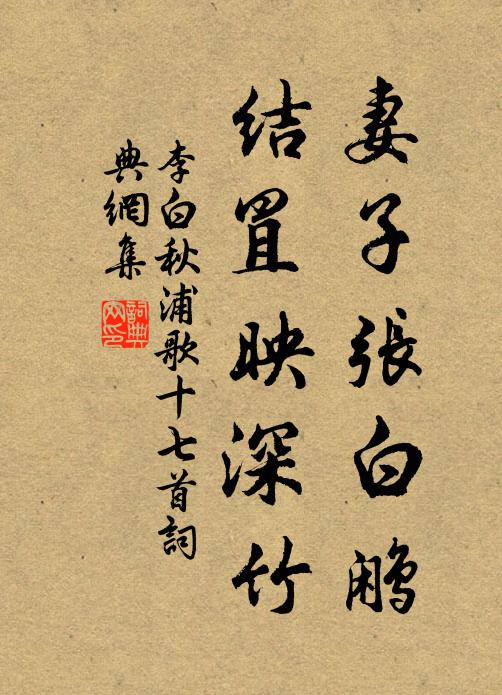 妻子張白鷴
結罝映深竹
李白秋浦歌十七首詞
典網集
詞典
网印